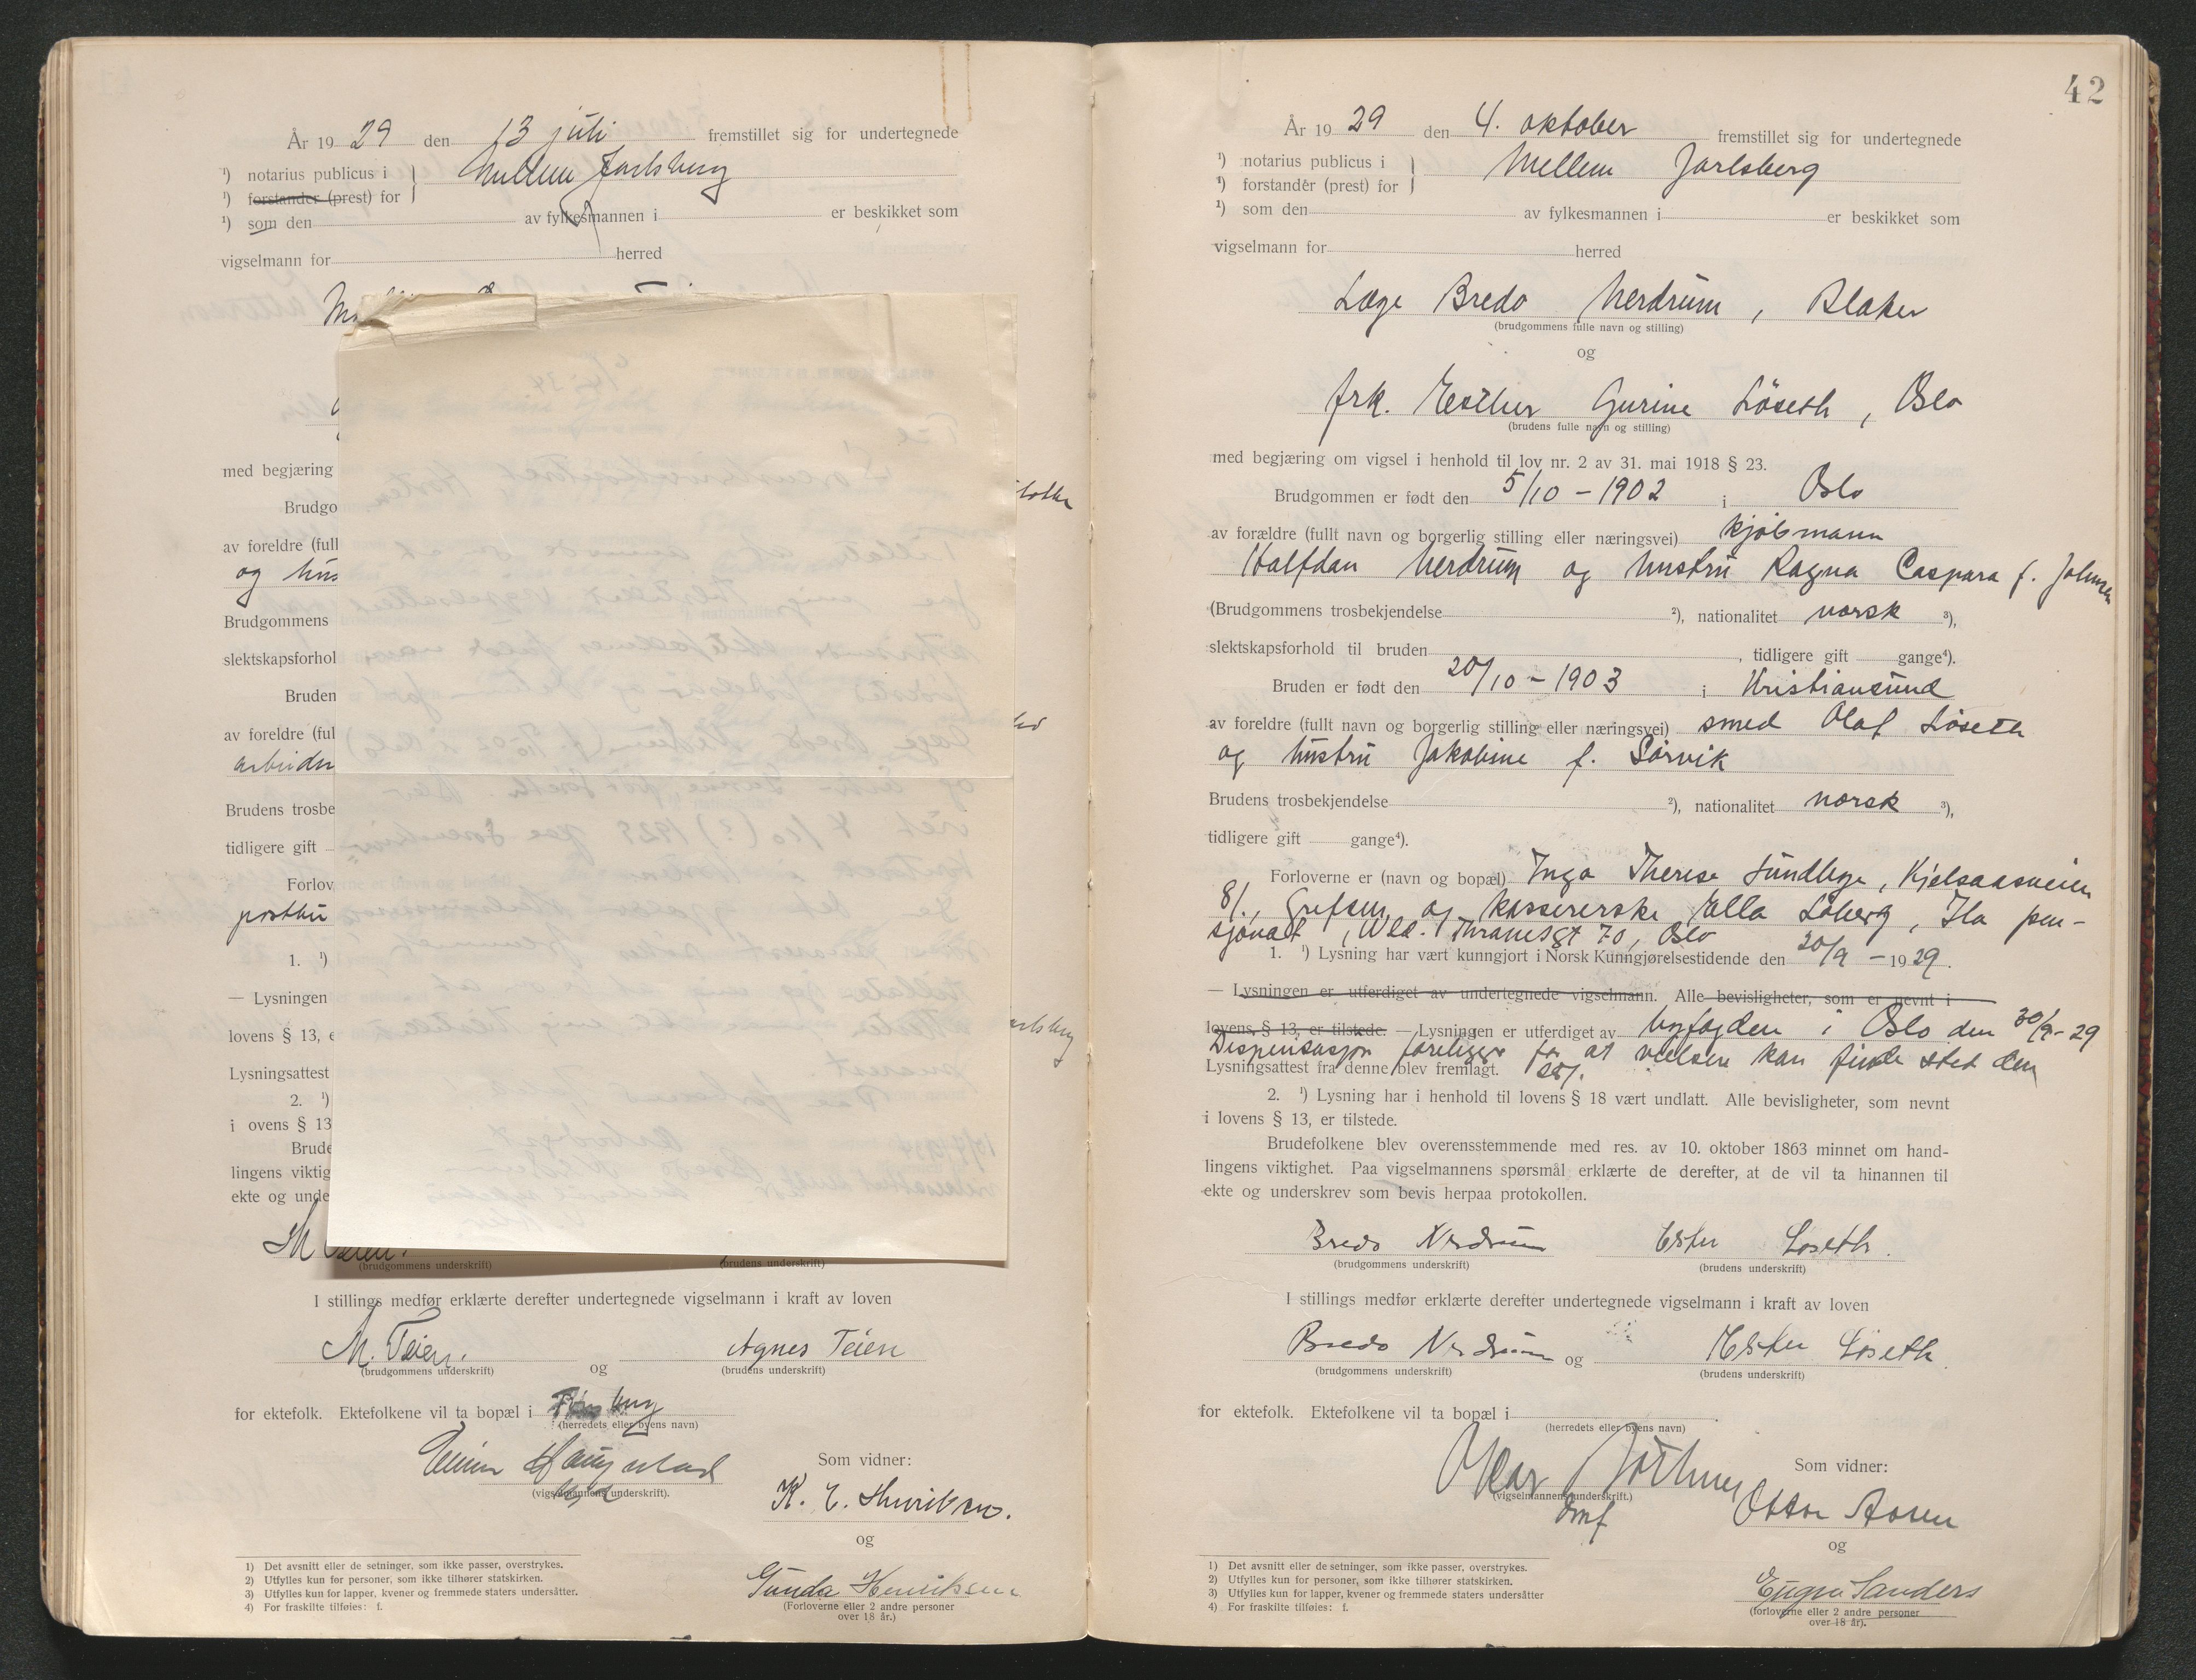 År 19 29 den 13 juli fremstillet sig for undertegnede
¹) notarius publicus i } Mellem Jarlsberg
¹) forstander (prest) for
¹) som den av fylkesmannen i er beskikket som
vigselmann for herred
med begjæring
Brudgo
av foreldre (full
og hus
Brudgommens
slektskapsforhol
Bruden
av foreldre (ful
arbeider
Brudens trosbe
tidligere gift
Forlov
postbu
1. ¹)
— Lysningen
lovens § 13, e
Lysningsattest
2. ¹)
i ovens § 13
Brude
lingens viktig
ekte og unde
M Teien.
(brudgommens underskrift) (brudens underskrift)
I stillings medfør erklærte derefter undertegnede vigselmann i kraft av loven
M. Teien. og Agnes Teien
(brudgommens underskrift) (brudens underskrift)
for ektefolk. Ektefolkene vil ta bopæl i
(herredets eller byens navn)
Som vidner:
(vigselmannens underskrift).
K. E. Henriksen.
og
Gunda Henriksen
(Forloverne eller 2 andre personer
over 18 år.)
1) Det avsnitt eller de setninger, som ikke passer, overstrykes.
2) Utfylles kun for personer, som ikke tilhører statskirken.
3) Utfylles kun for lapper, kvener og fremmede staters undersåtter.
4) For fraskilte tilføies: f.
42
År 19 29 den 4. oktober fremstillet sig for undertegnede
¹) notarius publicus i } Mellem Jarlsberg
¹) forstander (prest) for
¹) som den av fylkesmannen i er beskikket som
vigselmann for herred
Læge Bredo Nerdrum, Blaker
(brudgommens fulle navn og stilling)
og
frk. Esther Gurine Löseth, Oslo
(brudens fulle navn og stilling)
med begjæring om vigsel i henhold til lov nr. 2 av 31. mai 1918 § 23.
Brudgommen er født den 5/10 - 1902 i Oslo
av forældre (fullt navn og borgerlig stilling eller næringsvei) kjøbmann
Halfdan Nerdrum og hustru Ragna Caspara f. Johnsen
(Brudgommens trosbekjendelse ²), nationalitet norsk ³),
slektskapsforhold til bruden , tidligere gift gange⁴).
Bruden er født den 20/10 - 1903 i Kristiansund
av foreldre (fullt navn og borgerlig stilling eller næringsvei) smed Olaf Löseth
og hustru Jakobine f. Sörvik
Brudens trosbekjendelse ²), nationalitet norsk ³),
tidligere gift gange⁴).
Forloverne er (navn og bopæl) Inga Therese Sundlege, Kjelsaasveien
81., Grefsen og kassererske Ella Loberg, Ila pen-
sjonat, Wld. Thranesgt 70, Oslo
1. ¹) Lysning har vært kunngjort i Norsk Kunngjørelsestidende den 20/9 - 1929.
— Lysningen er utferdiget av undertegnede vigselmann. Alle bevisligheter, som er nevnt i
lovens § 13, er tilstede. — Lysningen er utferdiget av byfogden i Oslo den 30/9 - 29
Dispensasjon foreligger for at vielsen kan finde sted den
Lysningsattest fra denne blev fremlagt.
2. ¹) Lysning har i henhold til lovens § 18 vært undlatt. Alle bevisligheter, som nevnt
i lovens § 13, er tilstede.
Brudefolkene blev overensstemmende med res. av 10. oktober 1863 minnet om hand-
lingens viktighet. Paa vigselmannens spørsmål erklærte de derefter, at de vil ta hinannen til
ekte og underskrev som bevis herpaa protokollen.
Bredo Nerdrum Ester Löseth.
(brudgommens underskrift) (brudens underskrift)
I stillings medfør erklærte derefter undertegnede vigselmann i kraft av loven
Bredo Nerdrum og Ester Löseth.
(brudgommens underskrift) (brudens underskrift)
for ektefolk. Ektefolkene vil ta bopæl i
(herredets eller byens navn)
Som vidner:
(vigselmannens underskrift.)
og
(forloverne eller 2 andre personer
over 18 år).
1) Det avsnitt eller de setninger, som ikke passer, overstrykes.
2) Utfylles kun for personer, som ikke tilhører statskirken.
3) Utfylles kun for lapper, kvener og fremmede staters undersåtter
4) For fraskilte tilføies: f.